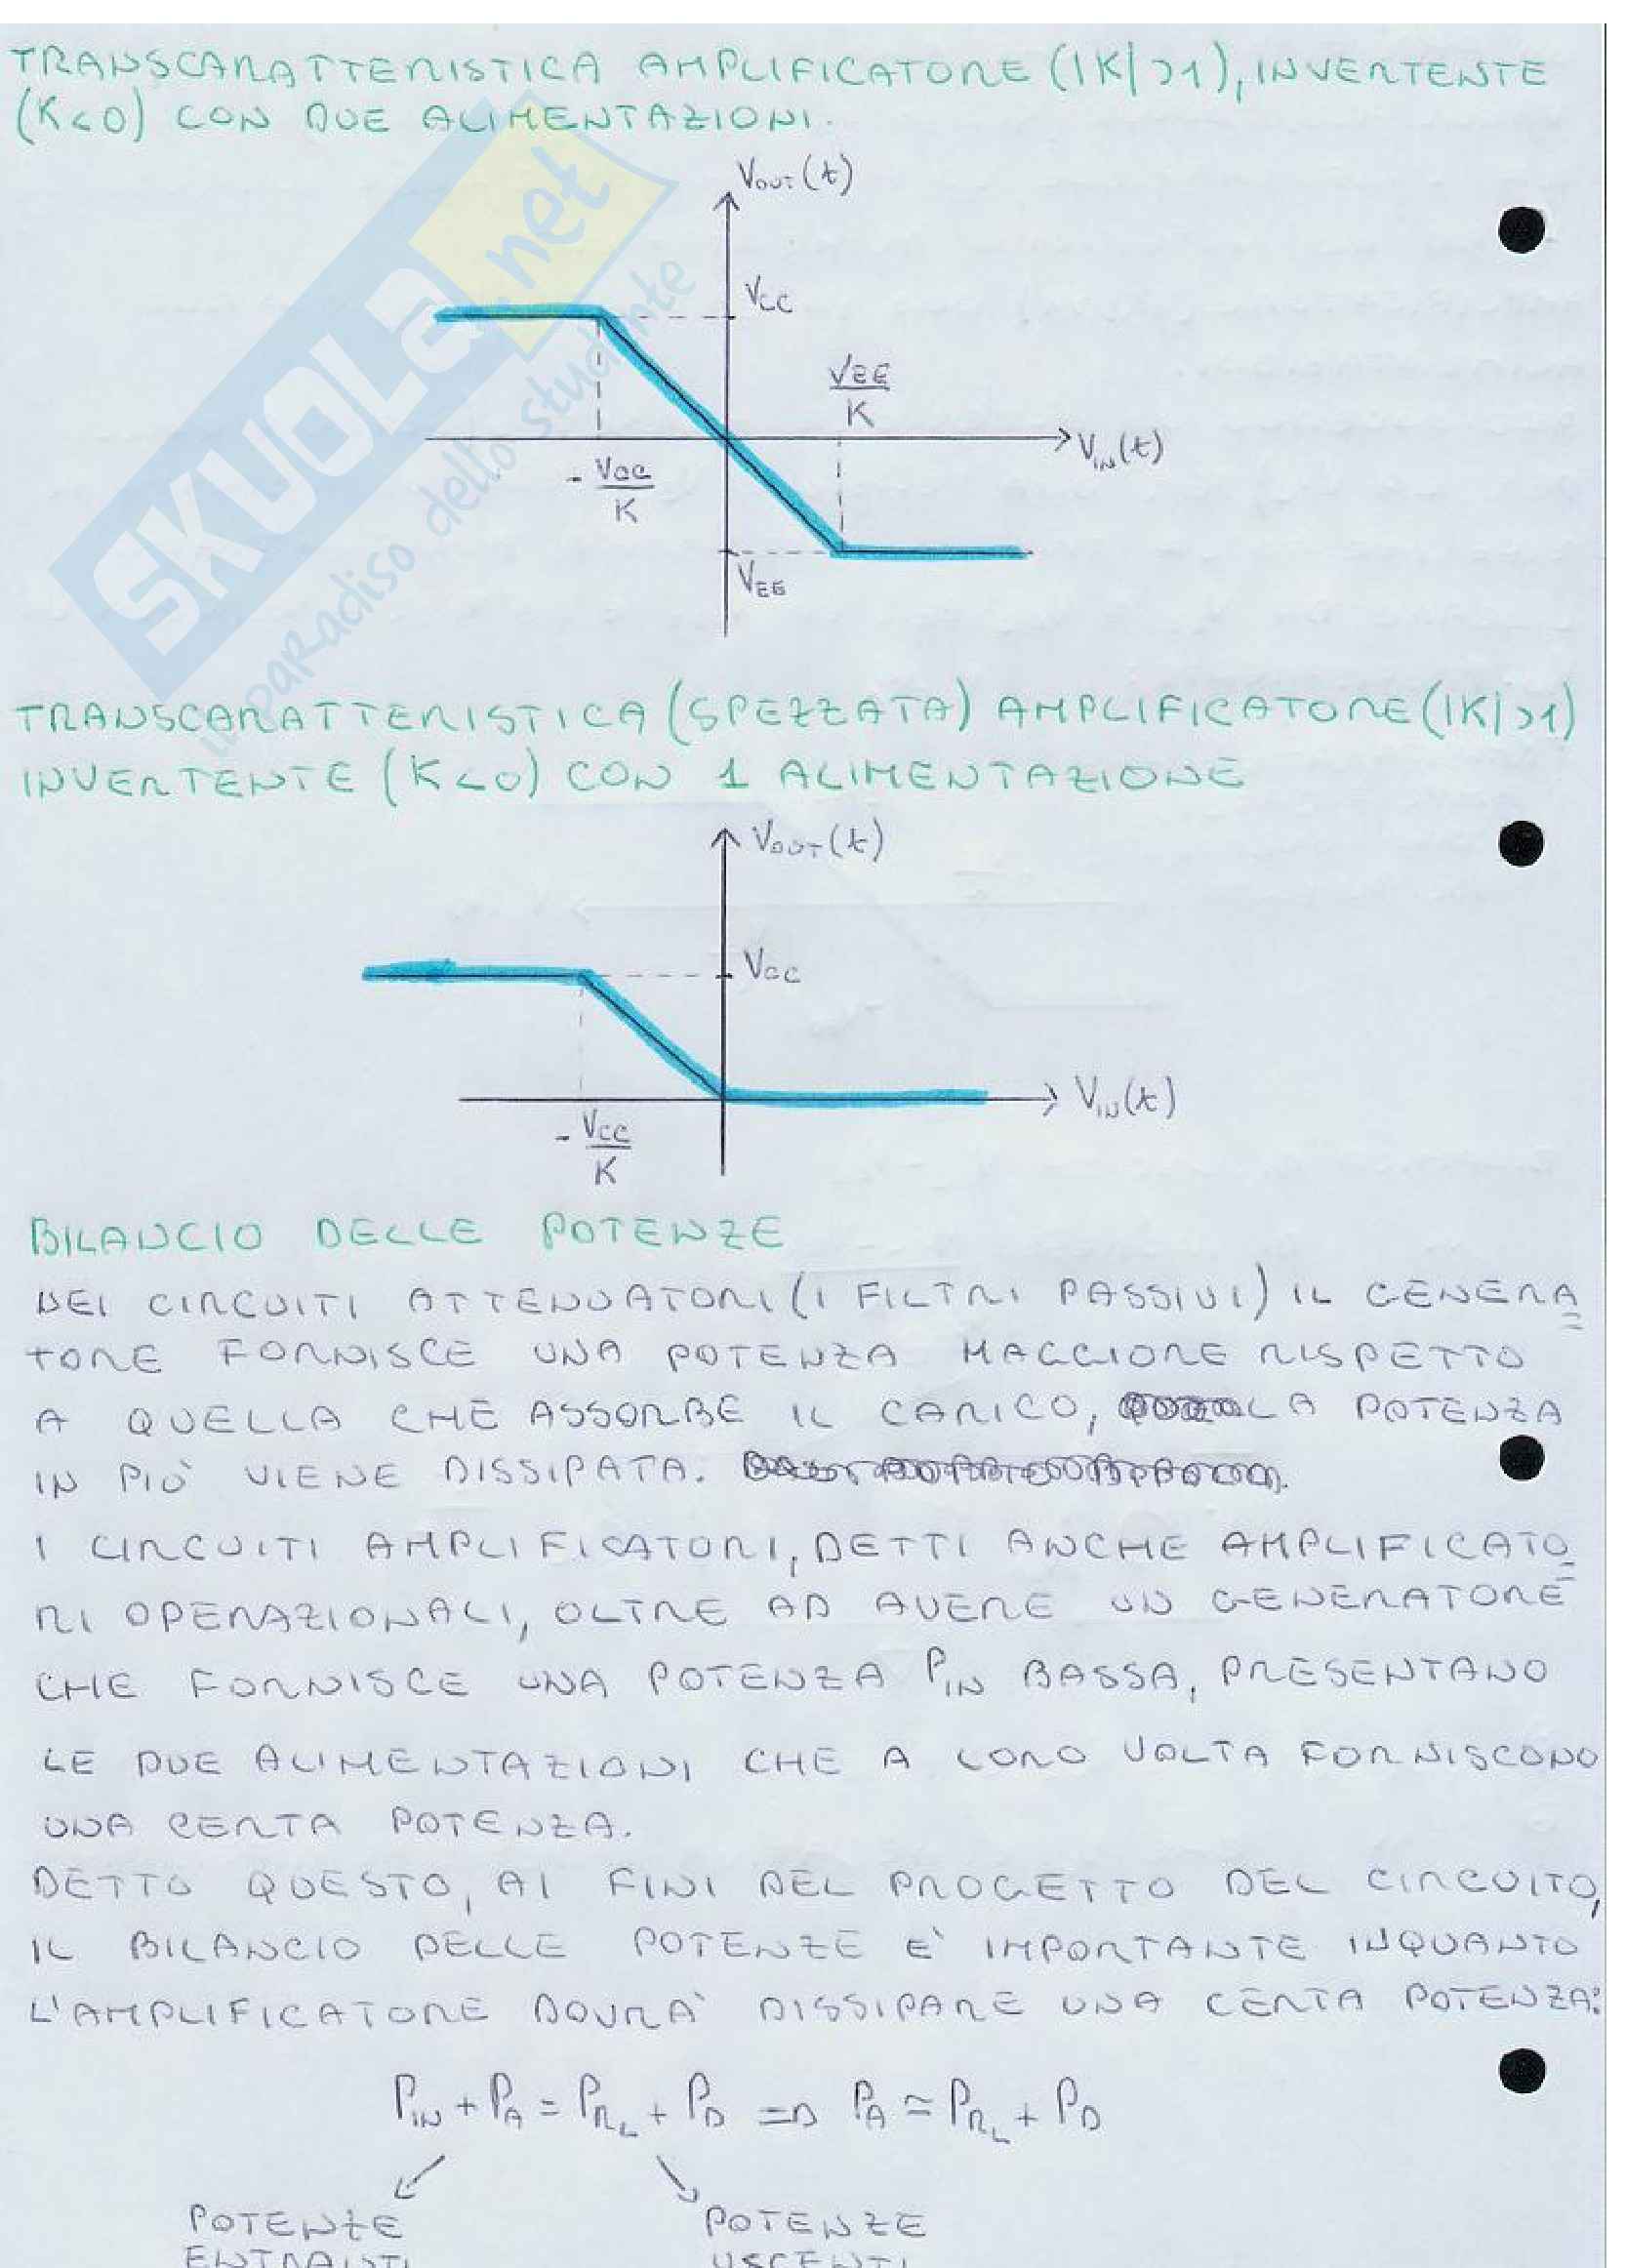 TRANSCARATTERISTICA AMPLIFICATORE (|K|>1), INVERTENTE
(K<0) CON DUE ALIMENTAZIONI.
VOUT(t)
VCC
VEE
K
VIN(t)
- VCC
K
VEE
SKUOLA.net
il paradiso dello studente
TRANSCARATTERISTICA (SPEZZATA) AMPLIFICATORE (|K|>1)
INVERTENTE (K<0) CON 1 ALIMENTAZIONE
VOUT(t)
VCC
VIN(t)
- VCC
K
BILANCIO DELLE POTENZE
NEI CIRCUITI ATTENUATORI (I FILTRI PASSIVI) IL GENERA
TORE FORNISCE UNA POTENZA MAGGIORE RISPETTO
A QUELLA CHE ASSORBE IL CARICO, LA POTENZA
IN PIÙ VIENE DISSIPATA.
I CIRCUITI AMPLIFICATORI, DETTI ANCHE AMPLIFICATO
RI OPERAZIONALI, OLTRE AD AVERE UN GENERATORE
CHE FORNISCE UNA POTENZA PIN BASSA, PRESENTANO
LE DUE ALIMENTAZIONI CHE A LORO VOLTA FORNISCONO
UNA CERTA POTENZA.
DETTO QUESTO, AI FINI DEL PROGETTO DEL CIRCUITO,
IL BILANCIO DELLE POTENZE E' IMPORTANTE INQUANTO
L'AMPLIFICATORE DOVRA' DISSIPARE UNA CERTA POTENZA:
PIN + PA = PRL + PD => PA ≃ PRL + PD
POTENZE POTENZE
ENTRANTI USCENTI